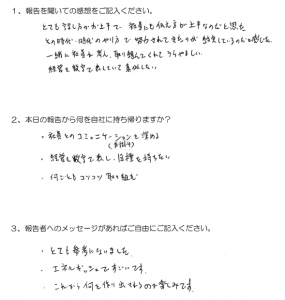 1、報告を聞いての感想をご記入ください。
とても話し方が上手で 社員にも伝え方が上手なのだと思た
その時代・時代のやり方で
一緒に社員が考え、取り組んでくれてうらやましい。
経営を数字で表していて素晴しい
2、本日の報告から何を自社に持ち帰りますか？
・社員とのコミュニケーションを深める
・経営を数字で表し、目標を持ちたい
・何ごともコツコツ取り組む
3、報告者へのメッセージがあればご自由にご記入ください。
・とても参考になりました。
・エネルギッシュですごいです。
・これから何を作り出されるのか楽しみです。